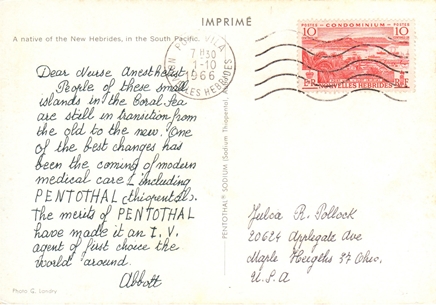 IMPRIMÉ
A native of the New Hebrides, in the South Pacific.
PORT VILA
7 H 30
1-10
1966
NOUVELLES HEBRIDES
POSTES CONDOMINIUM POSTES
10 10
NOUVELLES HEBRIDES
RF
Dear Nurse Anesthetist
People of these small
islands in the Coral Sea
are still in transition from
the old to the new. One
of the best changes has
been the coming of modern
medical care, including
PENTOTHAL (thiopental).
The merits of PENTOTHAL
have made it an I.V.
agent of first choice the
world around.
Abbott
PENTOTHAL® SODIUM (Sodium Thiopental,
Julca R. Pollock
20624 Applegate Ave
Maple Heigths 37 Ohio.
U.S.A
Photo G. Londry